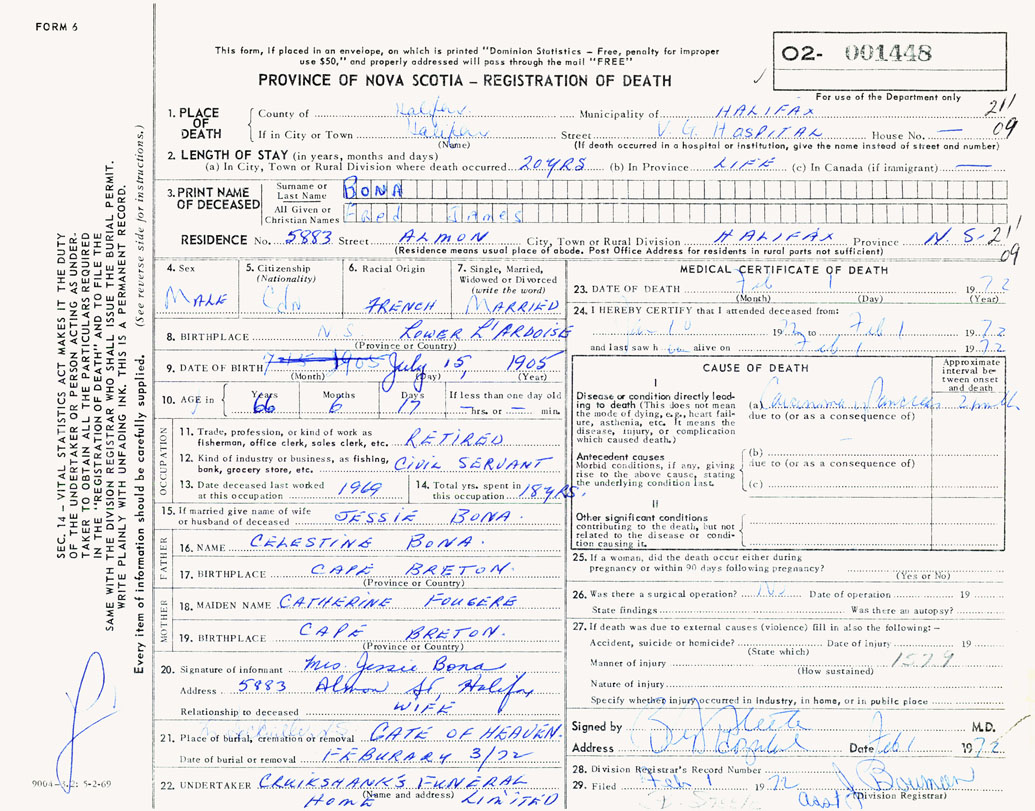 FORM 6
This form, if placed in an envelope, on which is printed "Dominion Statistics – Free, penalty for improper
use $50," and properly addressed will pass through the mail "FREE"
PROVINCE OF NOVA SCOTIA – REGISTRATION OF DEATH
02- 001448
For use of the Department only
1. PLACE OF DEATH County of Halifax Municipality of HALIFAX 211
If in City or Town Halifax Street V. G. HOSPITAL House No. — 09
(Name) (If death occurred in a hospital or institution, give the name instead of street and number)
2. LENGTH OF STAY (in years, months and days)
(a) In City, Town or Rural Division where death occurred 20 YRS (b) In Province LIFE (c) In Canada (if immigrant) —
3. PRINT NAME OF DECEASED Surname or Last Name BONA
All Given or Christian Names Fred James
RESIDENCE No. 5883 Street ALMON City, Town or Rural Division HALIFAX Province N.S. 211
(Residence means usual place of abode. Post Office Address for residents in rural parts not sufficient) 09
4. Sex MALE
5. Citizenship (Nationality) Cdn
6. Racial Origin FRENCH
7. Single, Married, Widowed or Divorced (write the word) MARRIED
8. BIRTHPLACE N.S. LOWER L'ARDOISE
(Province or Country)
9. DATE OF BIRTH 1905 July 15, 1905
(Month) (Day) (Year)
10. AGE in Years 66 Months 6 Days 17 If less than one day old — hrs. or — min.
OCCUPATION
11. Trade, profession, or kind of work as
fisherman, office clerk, sales clerk, etc. RETIRED
12. Kind of industry or business, as fishing,
bank, grocery store, etc. CIVIL SERVANT
13. Date deceased last worked
at this occupation 1969
14. Total yrs. spent in
this occupation 18 YRS.
15. If married give name of wife
or husband of deceased JESSIE BONA
FATHER
16. NAME CELESTINE BONA.
17. BIRTHPLACE CAPE BRETON.
(Province or Country)
MOTHER
18. MAIDEN NAME CATHERINE FOUGERE
19. BIRTHPLACE CAPE BRETON.
(Province or Country)
20. Signature of informant Mrs Jessie Bona
Address 5883 Almon St, Halifax
Relationship to deceased WIFE
21. Place of burial, cremation or removal GATE OF HEAVEN.
Date of burial or removal FEBURARY 3/72
22. UNDERTAKER CRUIKSHANK'S FUNERAL
(Name and address) HOME LIMITED
MEDICAL CERTIFICATE OF DEATH
23. DATE OF DEATH Feb 1 1972
(Month) (Day) (Year)
24. I HEREBY CERTIFY that I attended deceased from:
Jan 10 1972 to Feb 1 1972
and last saw him alive on Feb 1 1972
CAUSE OF DEATH
Approximate interval between onset and death
I
Disease or condition directly leading to death (This does not mean the mode of dying, e.g., heart failure, asthenia, etc. It means the disease, injury, or complication which caused death.)
(a) Carcinoma of Pancreas 2 months
due to (or as a consequence of)
Antecedent causes
Morbid conditions, if any, giving rise to the above cause, stating the underlying condition last.
(b)
due to (or as a consequence of)
(c)
II
Other significant conditions
contributing to the death, but not related to the disease or condition causing it.
25. If a woman, did the death occur either during
pregnancy or within 90 days following pregnancy?
(Yes or No)
26. Was there a surgical operation? No Date of operation 19
State findings Was there an autopsy?
27. If death was due to external causes (violence) fill in also the following: –
Accident, suicide or homicide? Date of injury 19
(State which)
Manner of injury 1579
(How sustained)
Nature of injury
Specify whether injury occurred in industry, in home, or in public place
Signed by M.D.
Address Hospital Date Feb 1 1972
28. Division Registrar's Record Number
29. Filed Feb 1 1972 J. Bowman
Asst (Division Registrar)
SEC. 14 – VITAL STATISTICS ACT MAKES IT THE DUTY
OF THE UNDERTAKER OR PERSON ACTING AS UNDER-
TAKER TO OBTAIN ALL THE PARTICULARS REQUIRED
IN THE "REGISTRATION OF DEATH" AND TO FILE THE
SAME WITH THE DIVISION REGISTRAR WHO SHALL ISSUE THE BURIAL PERMIT.
WRITE PLAINLY WITH UNFADING INK. THIS IS A PERMANENT RECORD.
Every item of information should be carefully supplied. (See reverse side for instructions.)